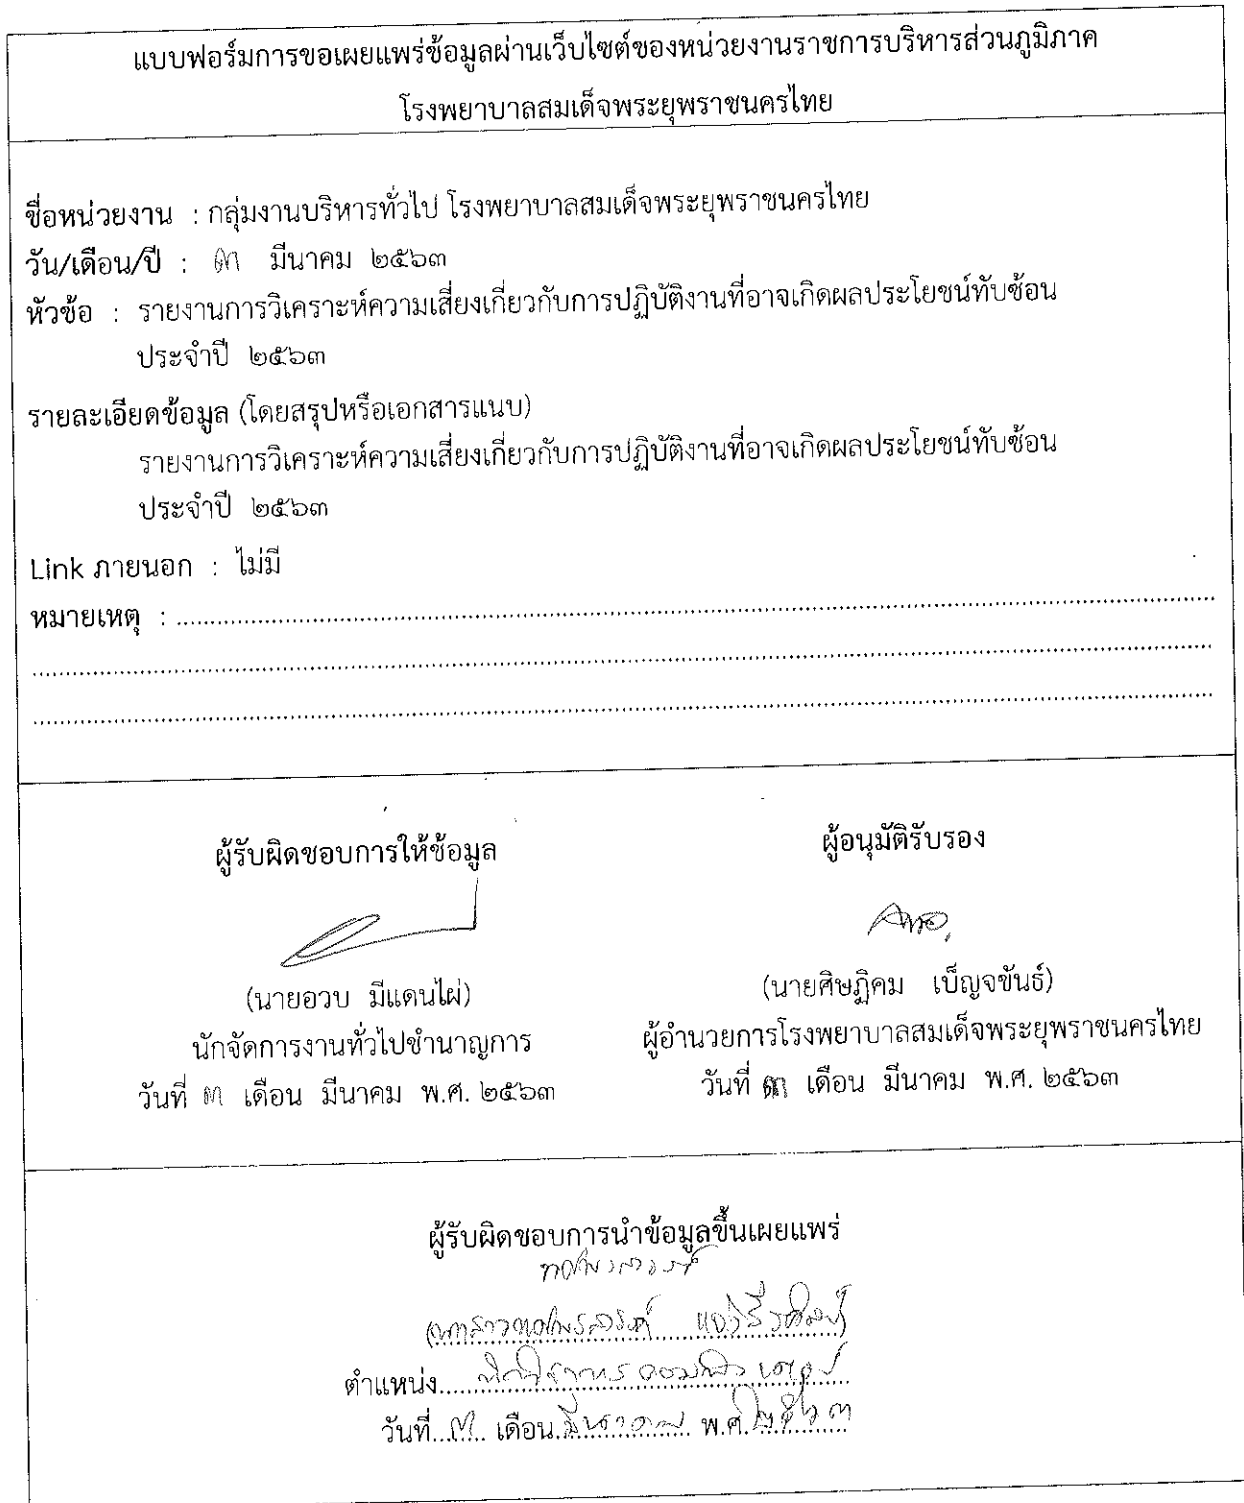 แบบฟอร์มการขอเผยแพร่ข้อมูลผ่านเว็บไซต์ของหน่วยงานราชการบริหารส่วนภูมิภาค
โรงพยาบาลสมเด็จพระยุพราชนครไทย
ชื่อหน่วยงาน : กลุ่มงานบริหารทั่วไป โรงพยาบาลสมเด็จพระยุพราชนครไทย
วัน/เดือน/ปี : ๓ มีนาคม ๒๕๖๓
หัวข้อ : รายงานการวิเคราะห์ความเสี่ยงเกี่ยวกับการปฏิบัติงานที่อาจเกิดผลประโยชน์ทับซ้อน
ประจำปี ๒๕๖๓
รายละเอียดข้อมูล (โดยสรุปหรือเอกสารแนบ)
รายงานการวิเคราะห์ความเสี่ยงเกี่ยวกับการปฏิบัติงานที่อาจเกิดผลประโยชน์ทับซ้อน
ประจำปี ๒๕๖๓
Link ภายนอก : ไม่มี
หมายเหตุ :
ผู้รับผิดชอบการให้ข้อมูล
(นายอวบ มีแดนไผ่)
นักจัดการงานทั่วไปชำนาญการ
วันที่ ๓ เดือน มีนาคม พ.ศ. ๒๕๖๓
ผู้อนุมัติรับรอง
(นายศิษฏิคม เบ็ญจขันธ์)
ผู้อำนวยการโรงพยาบาลสมเด็จพระยุพราชนครไทย
วันที่ ๓ เดือน มีนาคม พ.ศ. ๒๕๖๓
ผู้รับผิดชอบการนำข้อมูลขึ้นเผยแพร่
ตำแหน่ง นักวิชาการคอมพิวเตอร์
วันที่ ๓ เดือน มีนาคม พ.ศ. ๒๕๖๓